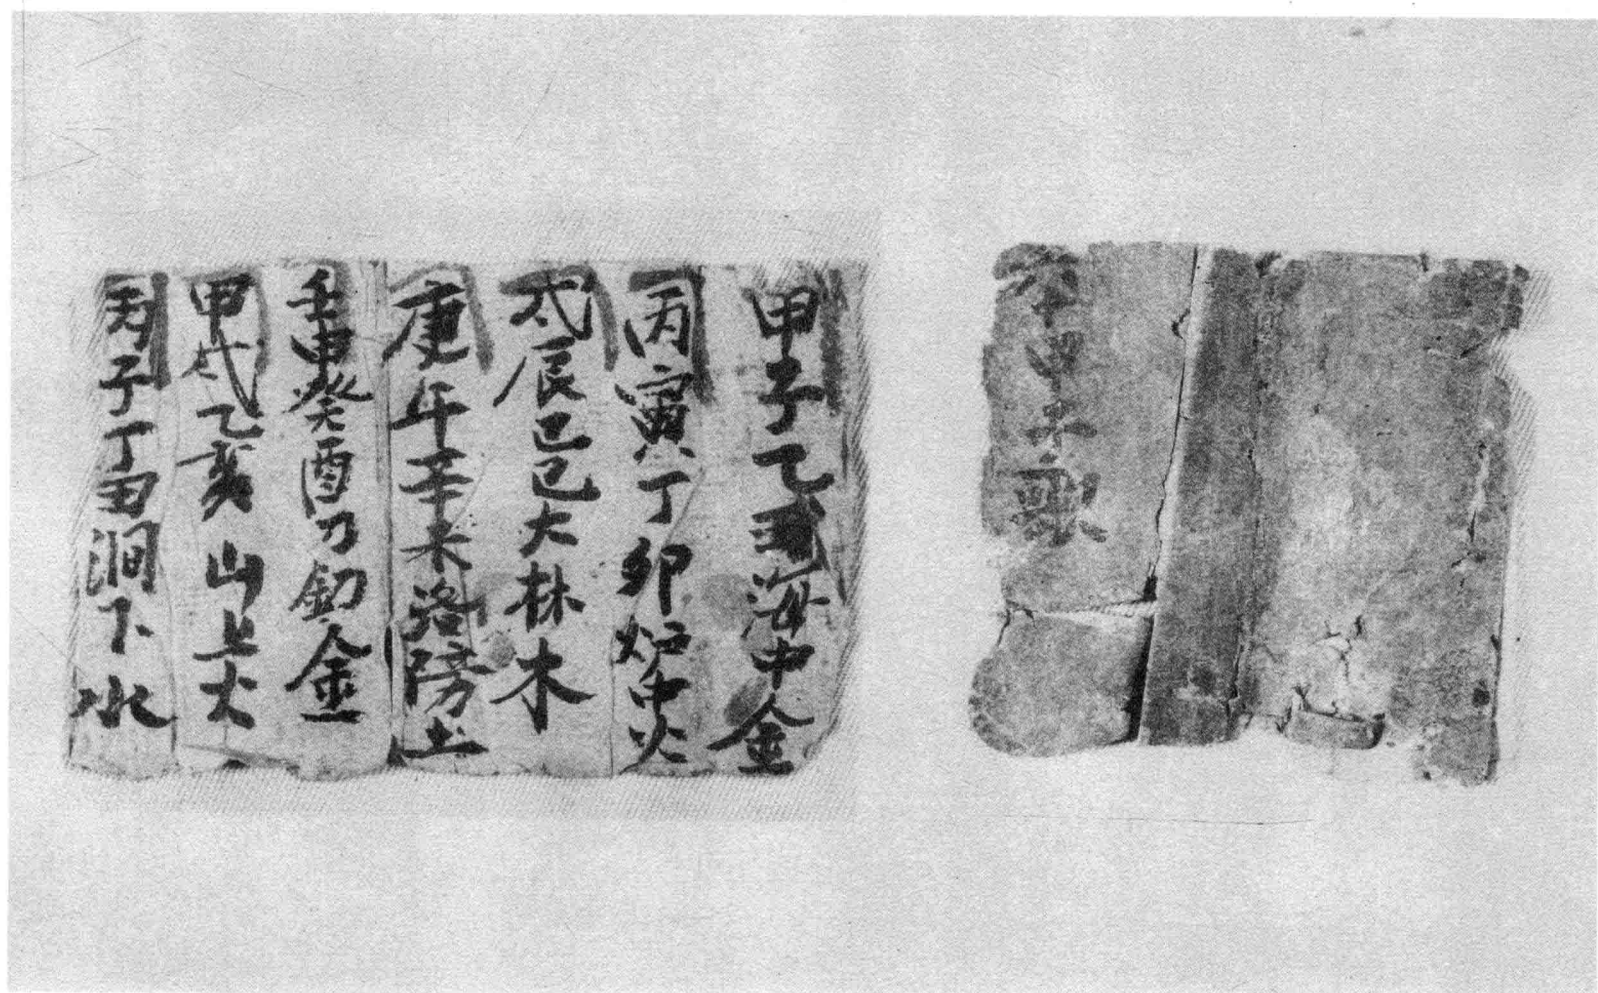 六十甲子歌
甲子乙丑海中金
丙寅丁卯炉中火
戊辰己巳大林木
庚午辛未洛傍土
壬申癸酉刀釰金
甲戌乙亥山上火
丙子丁丑澗下水